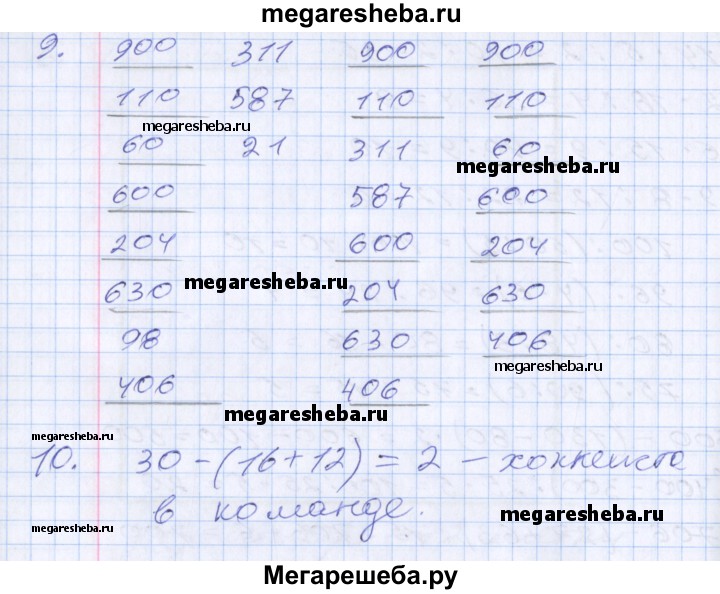 megaresheba.ru
9. 900 311 900 900
110 587 110 110
megaresheba.ru
60 21 311 60
megaresheba.ru
600 587 600
204 600 204
megaresheba.ru
630 204 630
98 630 406
megaresheba.ru
406 406
megaresheba.ru
megaresheba.ru
10. 30 - (16 + 12) = 2 - хоккеиста
в команде.
megaresheba.ru
megaresheba.ru
Мегарешеба.ру